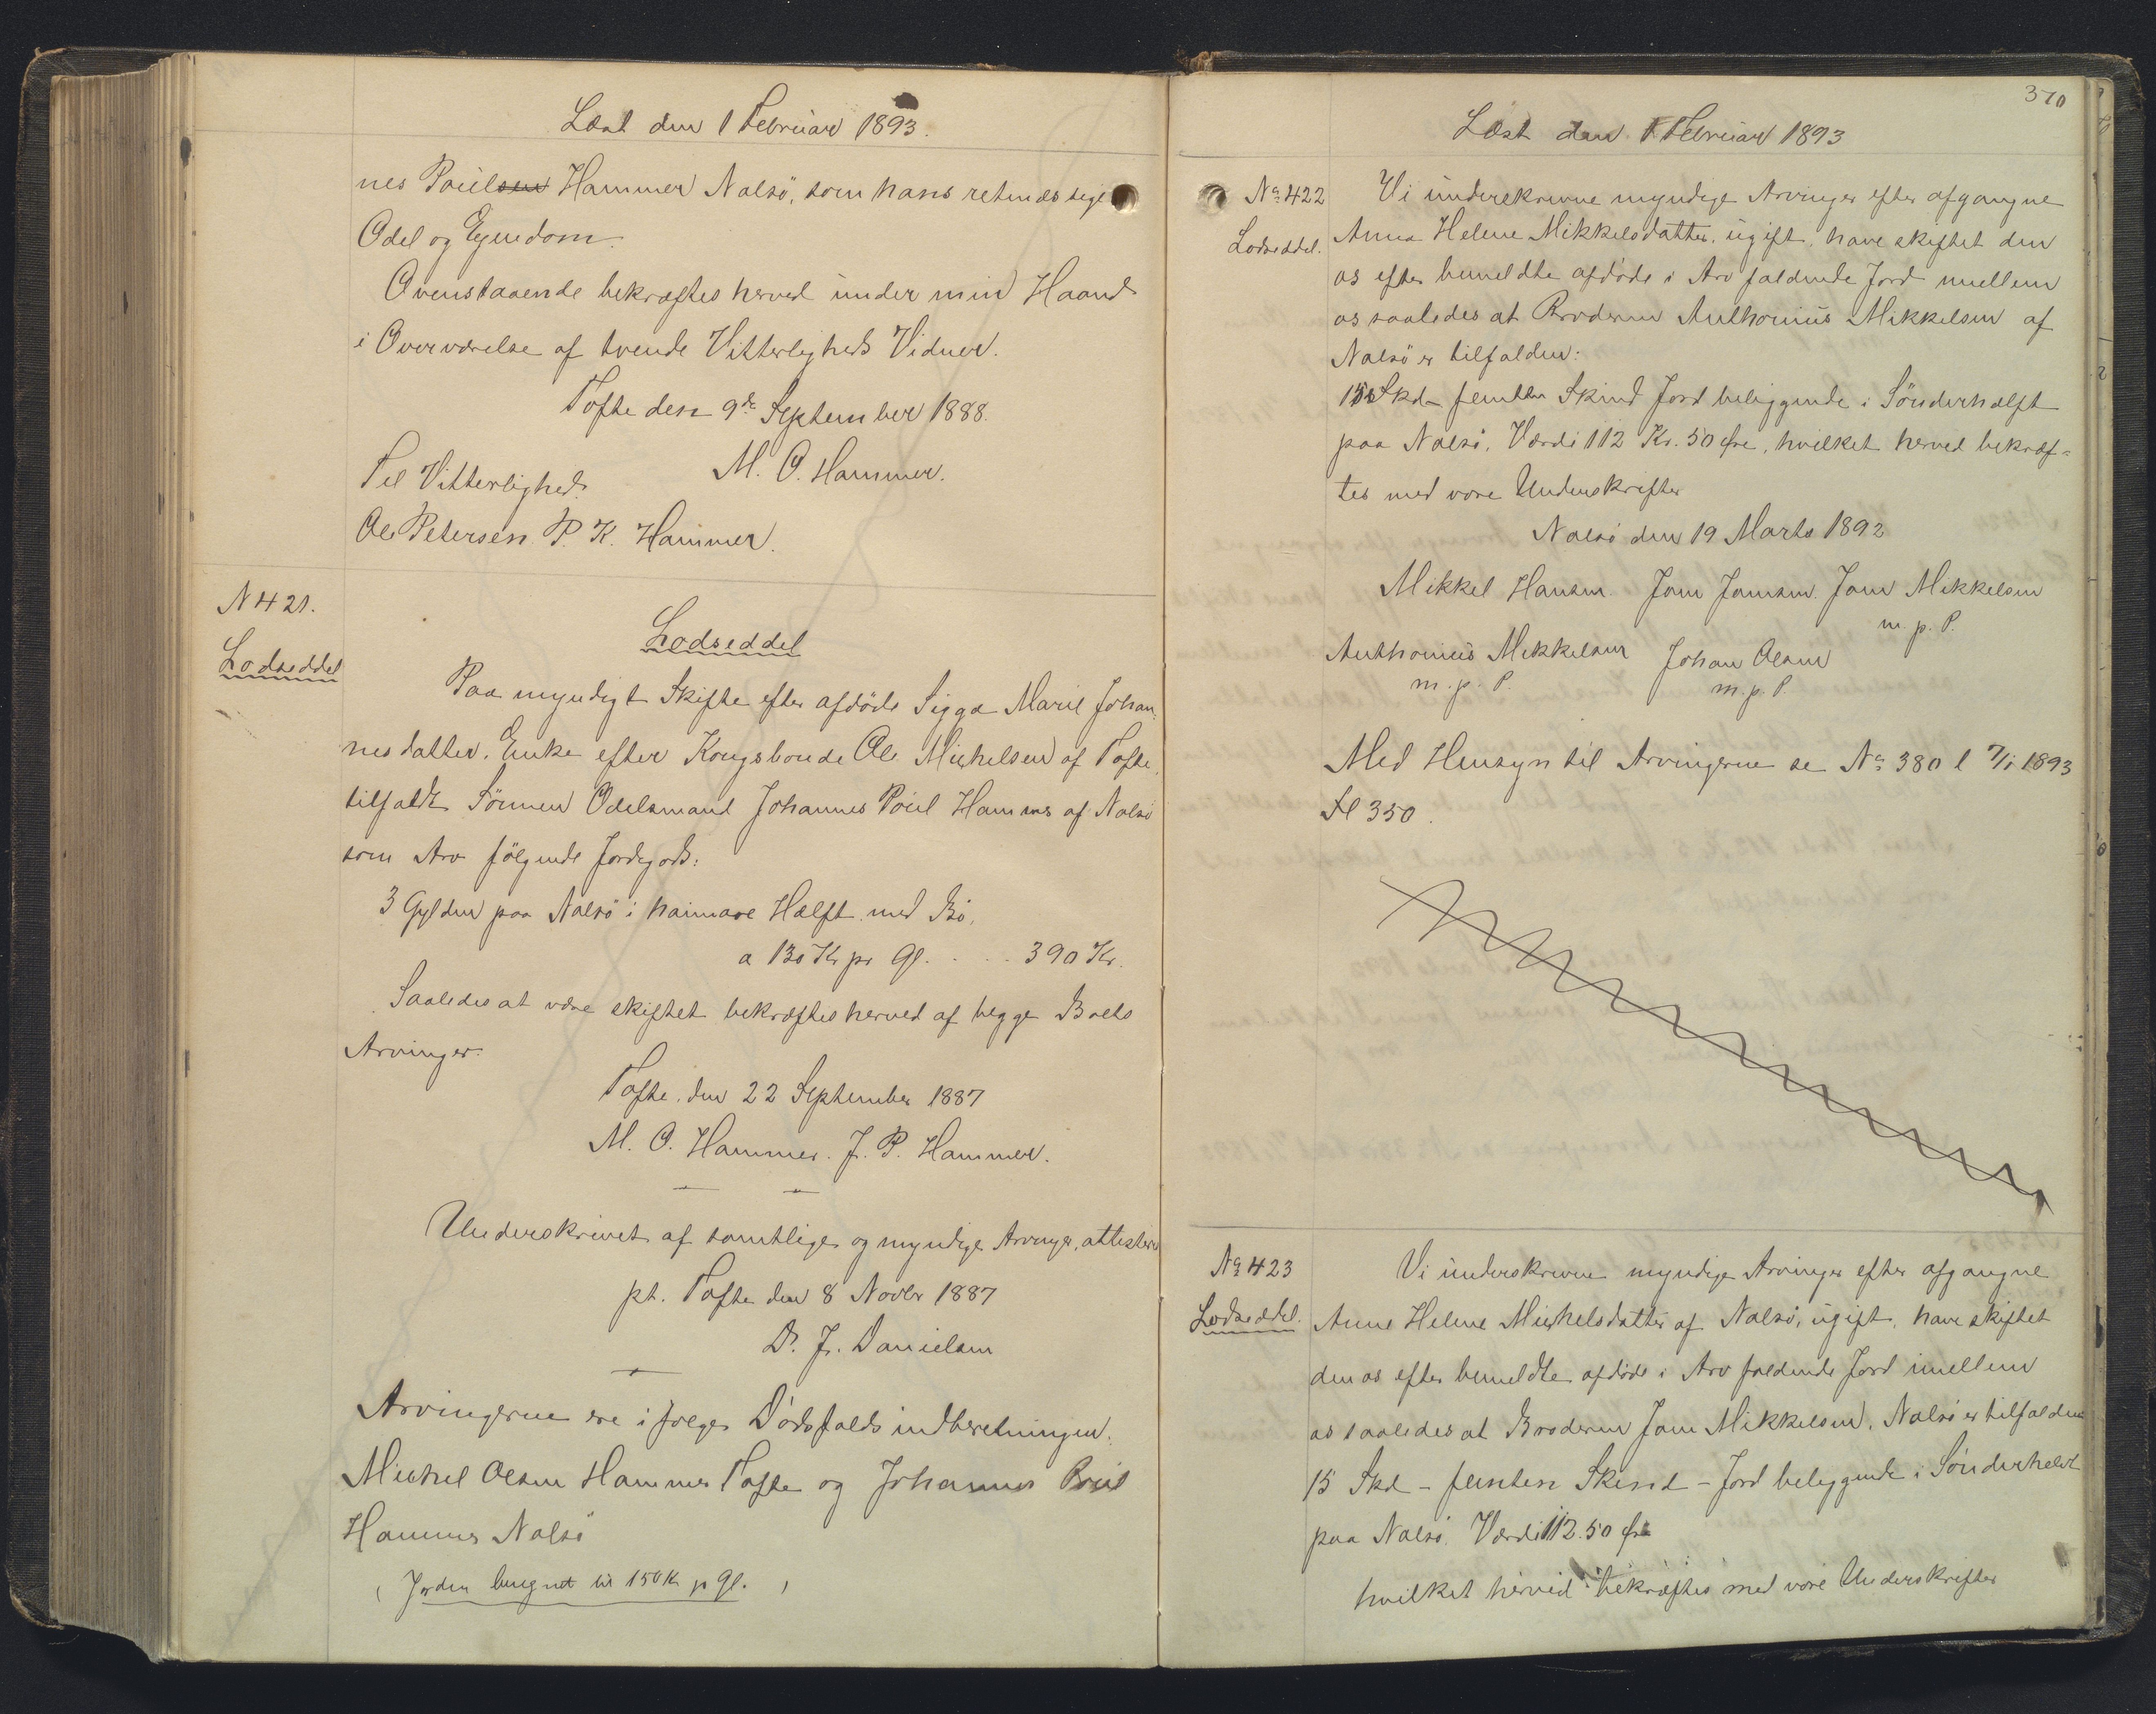 Læst den 1 Februar 1893.
nes Poulsen Hammer Nalsö, som hans retmæssige
Odel og Ejendom.
Ovenstaaende bekræftes herved under min Haand
i Overværelse af tvende Vitterligheds Vidner.
Tofte den 9de September 1888.
M. O. Hammer.
Til Vitterlighed.
Ole Petersen. P. K. Hammer.
N 421.
Lodseddel
Lodseddel
Paa myndigt Skifte efter afdöde Sigga Marie Johan-
nesdatter, Enke efter Kongsbonde Ole Michelsen af Tofte,
tilfaldt Sönnen Odelsmand Johannes Poul Hammer af Nalsö
som Arv fölgende Jordegods:
3 Gylden paa Nalsö i haimare Hælft med Bö,
a 130 Kr pr Gl. . . . 390 Kr.
Saaledes at være skiftet bekræftes herved af begge Boets
Arvinger.
Tofte, den 22 September 1887
M. O. Hammer. J. P. Hammer.
Underskrivet af samtlige og myndige Arvinger, attesterer
pt. Tofte den 8 Novbr 1887
D. J. Danielsen
Arvingerne ere i fölge Dödsfaldsindberetningen:
Michel Olsen Hammer Tofte og Johannes Poul
Hammer Nalsö
( Jorden beregnet til 150 Kr pr Gl. )
370
Læst den 1 Februar 1893
No 422
Lodseddel.
Vi underskrevne myndige Arvinger efter afgangne
Anna Helene Mikkelsdatter, ugift, have skiftet den
os efter bemeldte afdöde i Arv faldende Jord mellem
os saaledes at Broderen Anthonius Mikkelsen af
Nalsö er tilfalden:
15 Skd - femten Skind Jord beliggende i Sönderhælft
paa Nalsö, Værdi 112 Kr. 50 Øre, hvilket herved bekræf-
tes med vore Underskrifter
Nalsö den 19 Marts 1892
Mikkel Hansen. Joen Joensen. Joen Mikkelsen
m. p. P.
Anthonius Mikkelsen Johan Olsen
m. p. P. m. p. P.
Med Hensyn til Arvingerne se No 380 l 7/1 1893
Fl 350.
No 423
Lodseddel.
Vi underskrevne myndige Arvinger efter afgangne
Anne Helene Michelsdatter af Nalsö, ugift, have skiftet
den os efter bemeldte afdöde i Arv faldende Jord imellem
os saaledes at Broderen Joen Mikkelsen, Nalsö er tilfalden
15 Skd - femten Skind - Jord beliggende i Sönderhelvt
paa Nalsö, Værdi 112.50 Øre
hvilket herved bekræftes med vore Underskrifter